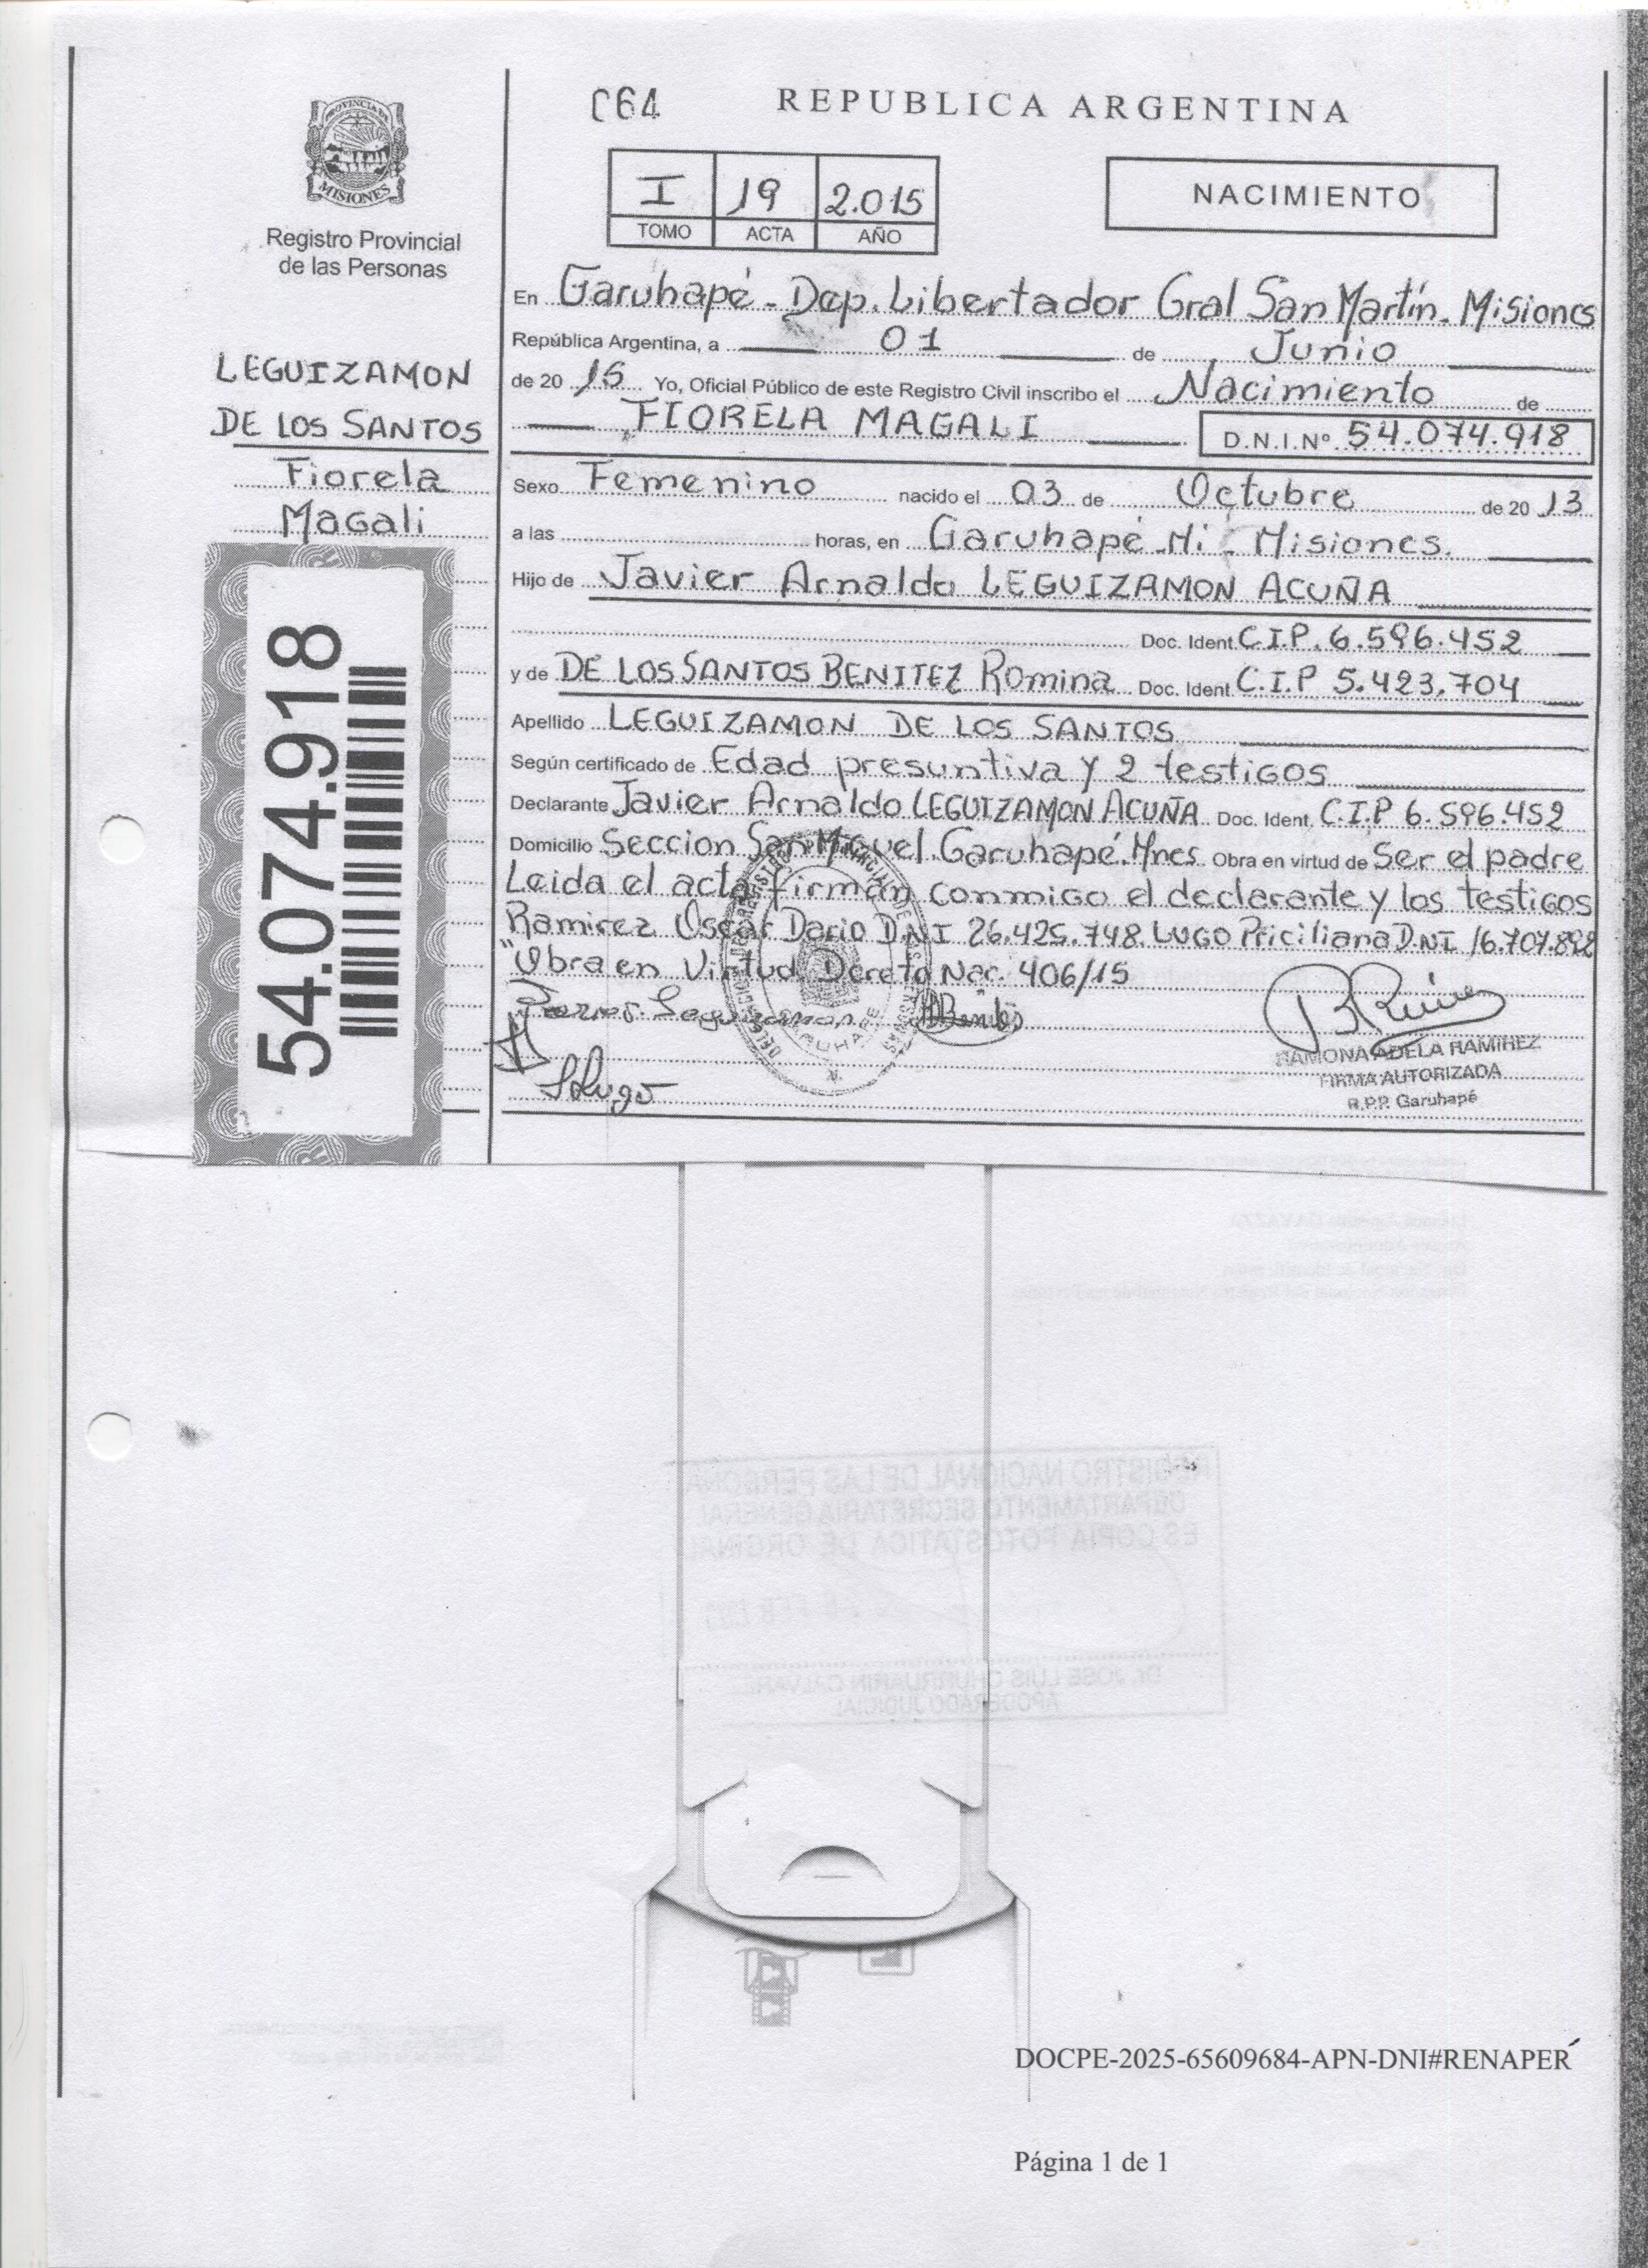 C64
REPUBLICA ARGENTINA
PROVINCIA DE
MISIONES
Registro Provincial
de las Personas
I 19 2.015
TOMO ACTA AÑO
NACIMIENTO
LEGUIZAMON
DE LOS SANTOS
Fiorela
Magali
54.074.918
En Garuhapé - Dep. Libertador Gral San Martín. Misiones
República Argentina, a 01 de Junio
de 20 15 Yo, Oficial Público de este Registro Civil inscribo el Nacimiento de
FIORELA MAGALI D.N.I.Nº 54.074.918
Sexo Femenino nacido el 03 de Octubre de 20 13
a las horas, en Garuhapé Mi - Misiones.
Hijo de Javier Arnaldo LEGUIZAMON ACUÑA
Doc. Ident. C.I.P. 6.596.452
y de DE LOS SANTOS BENITEZ Romina Doc. Ident. C.I.P 5.423.704
Apellido LEGUIZAMON DE LOS SANTOS
Según certificado de Edad presuntiva y 2 testigos
Declarante Javier Arnaldo LEGUIZAMON ACUÑA Doc. Ident. C.I.P 6.596.452
Domicilio Seccion San Miguel Garuhapé. Mnes Obra en virtud de Ser el padre
Leida el acta firman conmigo el declarante y los testigos
Ramirez Oscar Dario DNI 26.425.748. LUGO Priciliana D.NI 16.707.892
"Obra en Virtud Decreto Nac. 406/15
RAMONA ADELA RAMIREZ
FIRMA AUTORIZADA
R.P.P. Garuhapé
REGISTRO NACIONAL DE LAS PERSONAS
DEPARTAMENTO SECRETARIA GENERAL
ES COPIA FOTOSTATICA DE ORGINAL
APODERADO JUDICIAL
DOCPE-2025-65609684-APN-DNI#RENAPER
Página 1 de 1